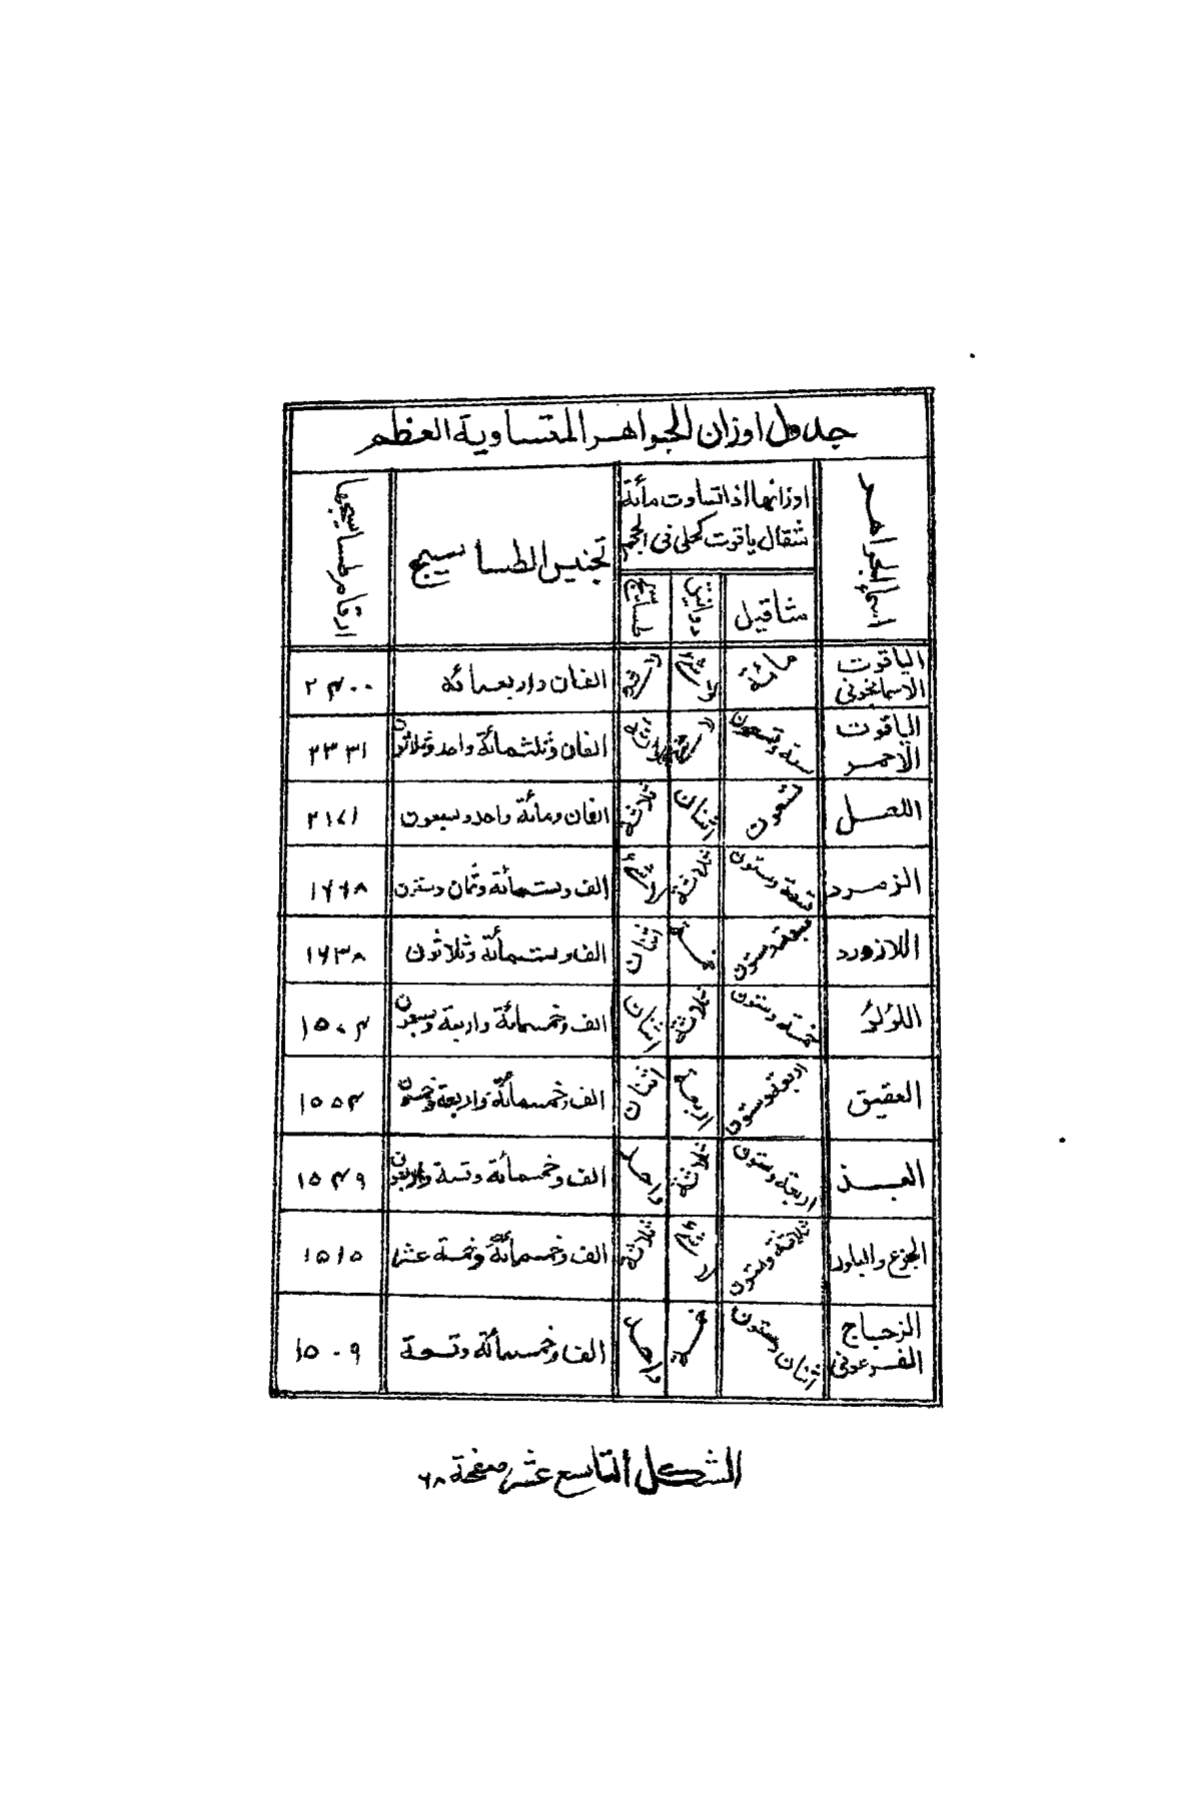 جدول اوزان الجواهر المتساوية العظم
اسماء الجواهر
اوزانها اذا تساوت مائة
مثقال ياقوت كحلى فى الحجم
مثاقيل
دوانيق
طساسيج
تجنيس الطساسيج
ارقام طساسيجها
الياقوت الاسمانجونى
مائة
لا شىء
الفان واربعمائة
٢۴٠٠
الياقوت الاحمر
ستة وتسعون
ثلاثة
الفان وثلثمائة واحد وثلاثون
٢٣٣١
اللعل
تسعون
اثنان
ثلاثة
الفان ومائة واحد وسبعون
٢١٧١
الزمرد
تسعة وستون
ثلاثة
لا شىء
الف وستمائة وثمان وستون
١٦٦٨
اللازورد
سبعة وستون
خمسة
اثنان
الف وستمائة وثلاثون
١٦٣٨
اللؤلؤ
خمسة وستون
ثلاثة
اثنان
الف وخمسمائة واربعة وسبعون
١٥٧۴
العقيق
اربعة وستون
اربعة
اثنان
الف وخمسمائة واربعة وخمسون
١٥٥۴
البسذ
اربعة وستون
ثلاثة
واحد
الف وخمسمائة وتسة واربعون
١٥۴٩
الجزع والبلور
ثلاثة وستون
لا شىء
ثلاثة
الف وخمسمائة وخمسة عشر
١٥١٥
الزجاج الفرعونى
اثنان وستون
خمسة
واحد
الف وخمسمائة وتسعة
١٥٠٩
الشكل التاسع عشر صفحة ٦٨